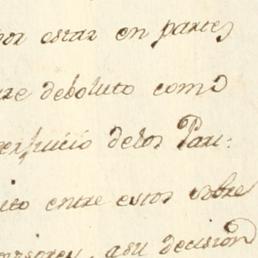 por estar en partes
re deboluto como
perjuicio delos Pari-
ito entre estos sobre
misiones, asu decision